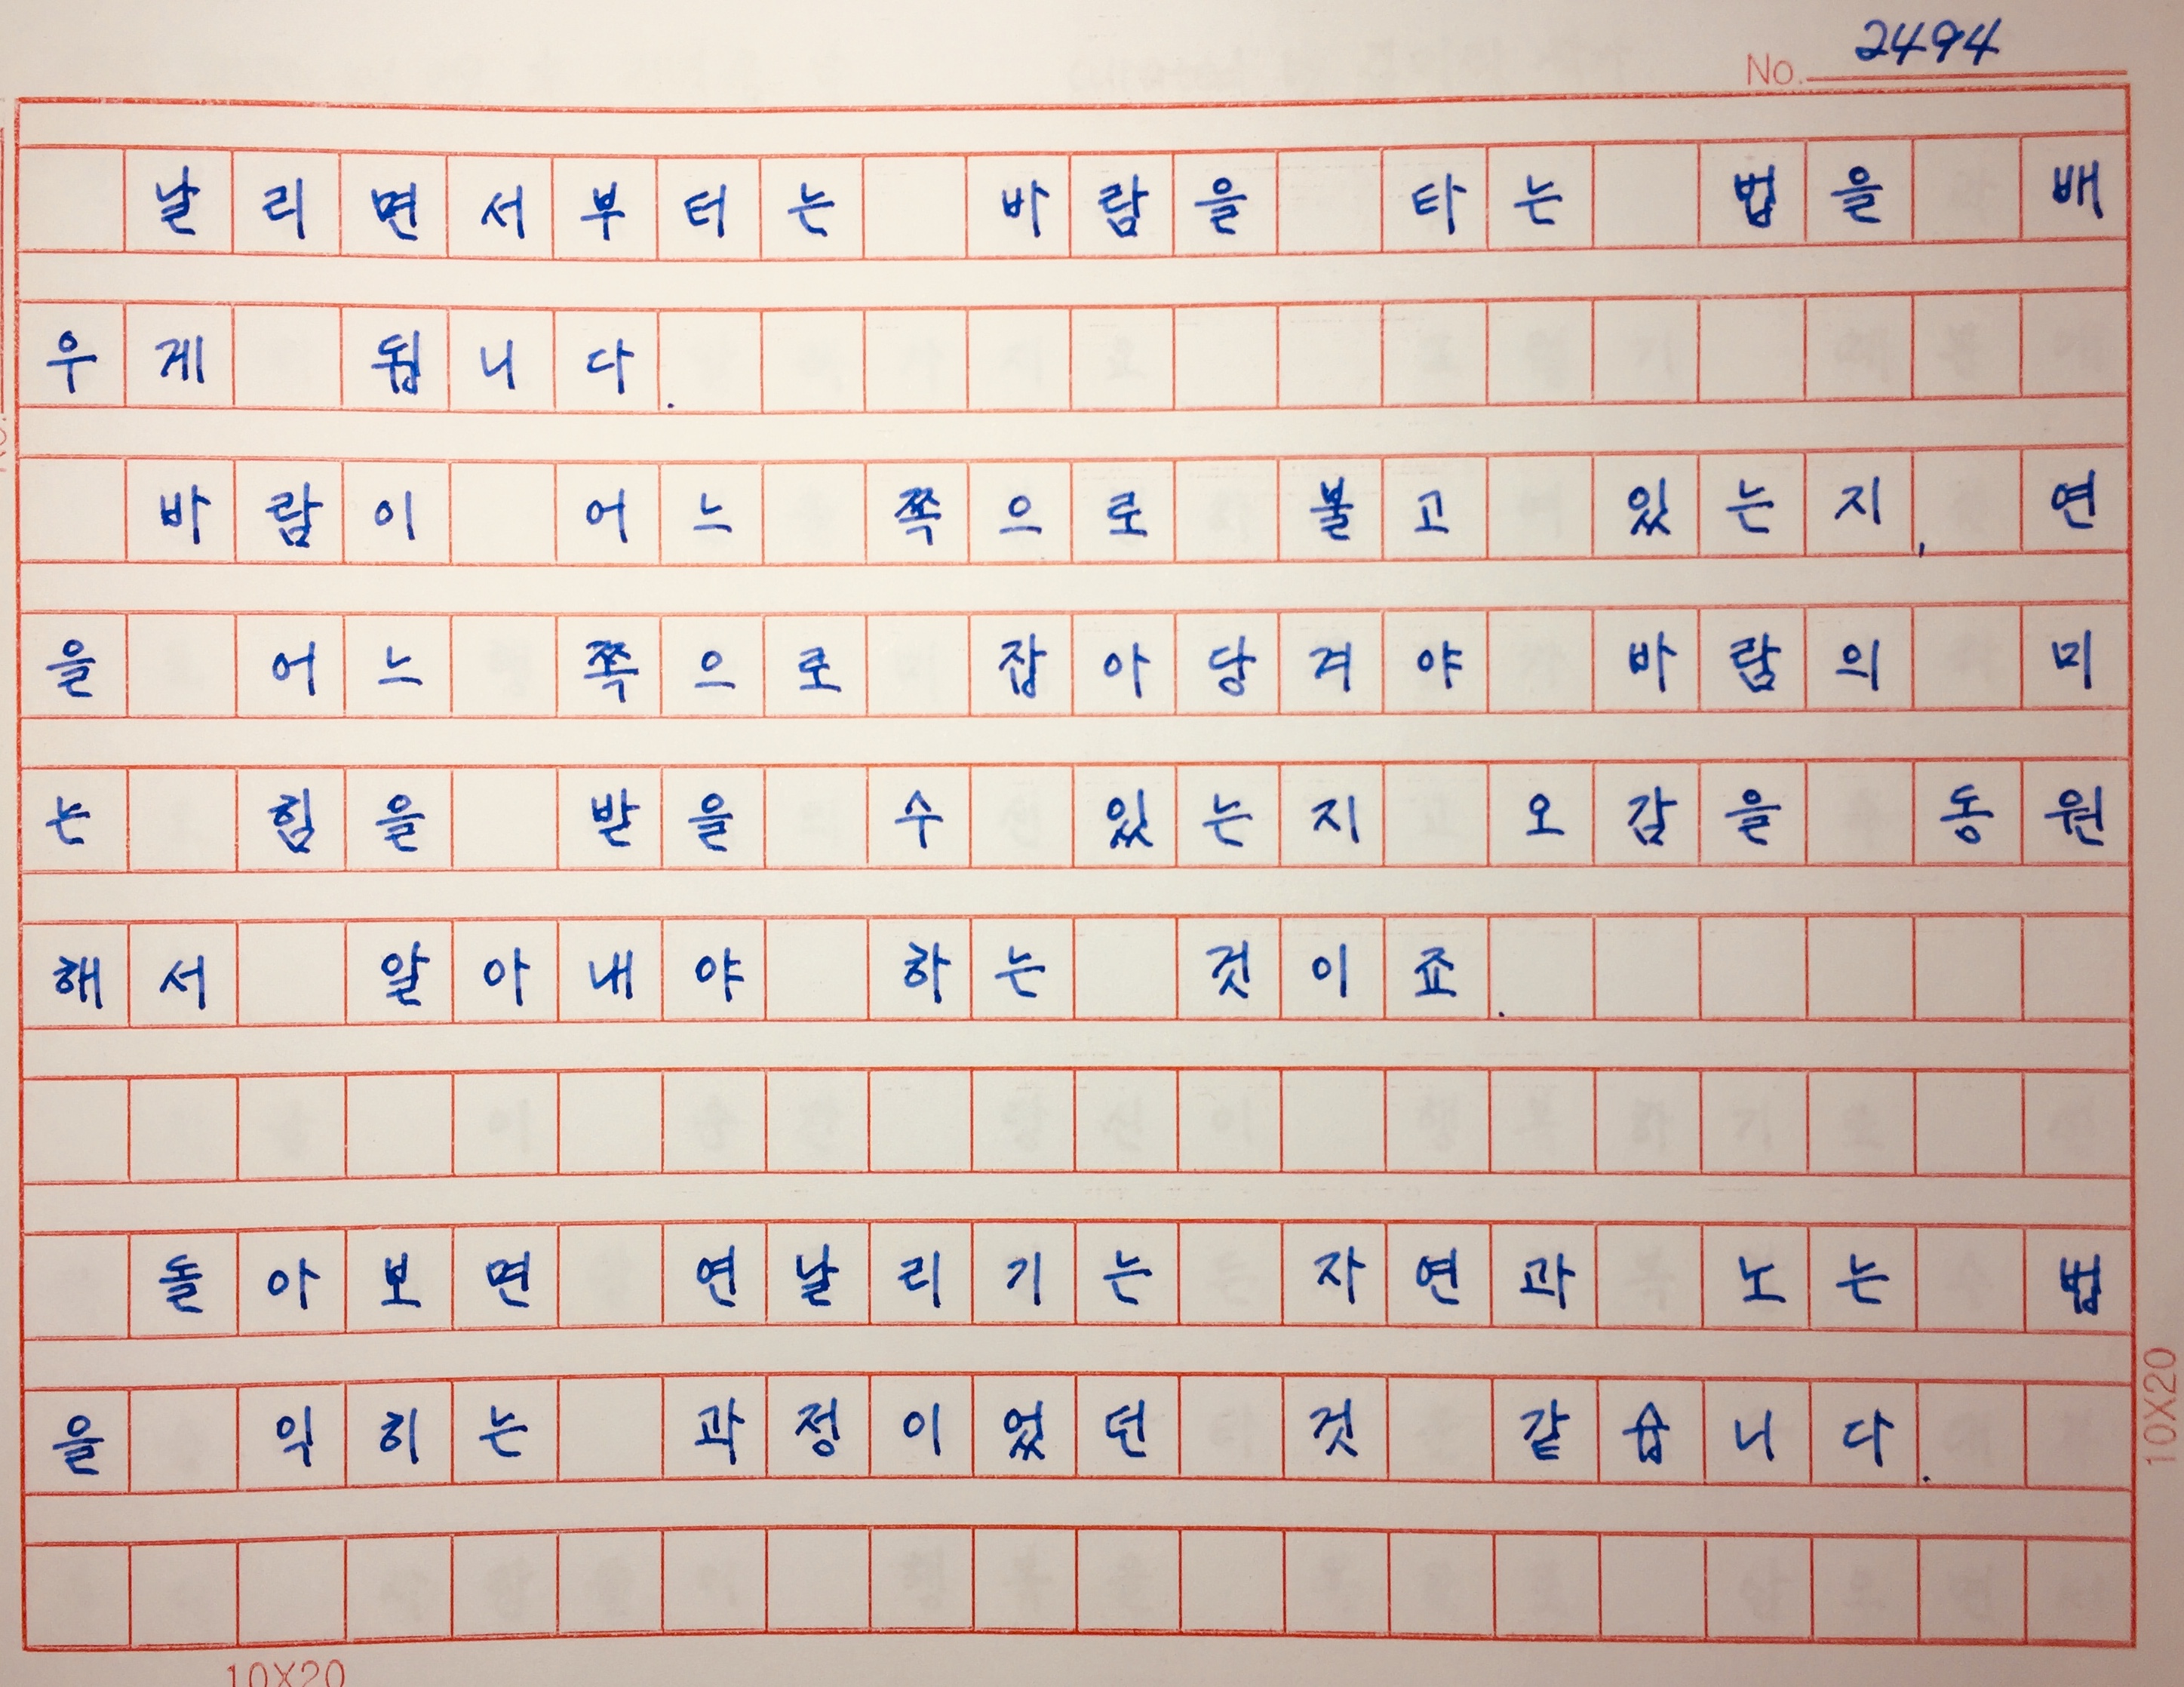 No. 2494
날리면서부터는 바람을 타는 법을 배
우게 됩니다.
바람이 어느 쪽으로 불고 있는지, 연
을 어느 쪽으로 잡아당겨야 바람의 미
는 힘을 받을 수 있는지 오감을 동원
해서 알아내야 하는 것이죠.
돌아보면 연날리기는 자연과 노는 법
을 익히는 과정이었던 것 같습니다.
10X20
10X20